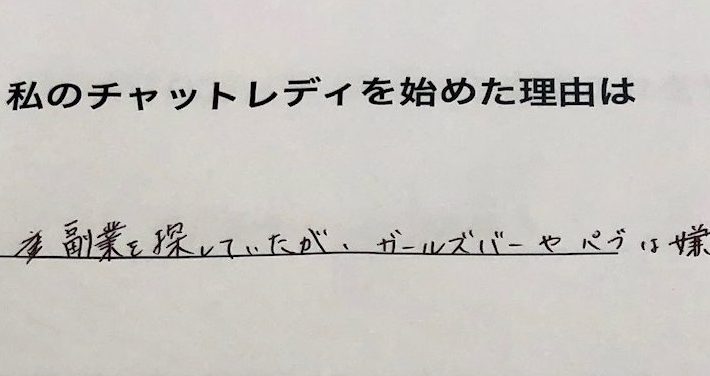 私のチャットレディを始めた理由は
副業を探していたが、ガールズバーやパブは嫌